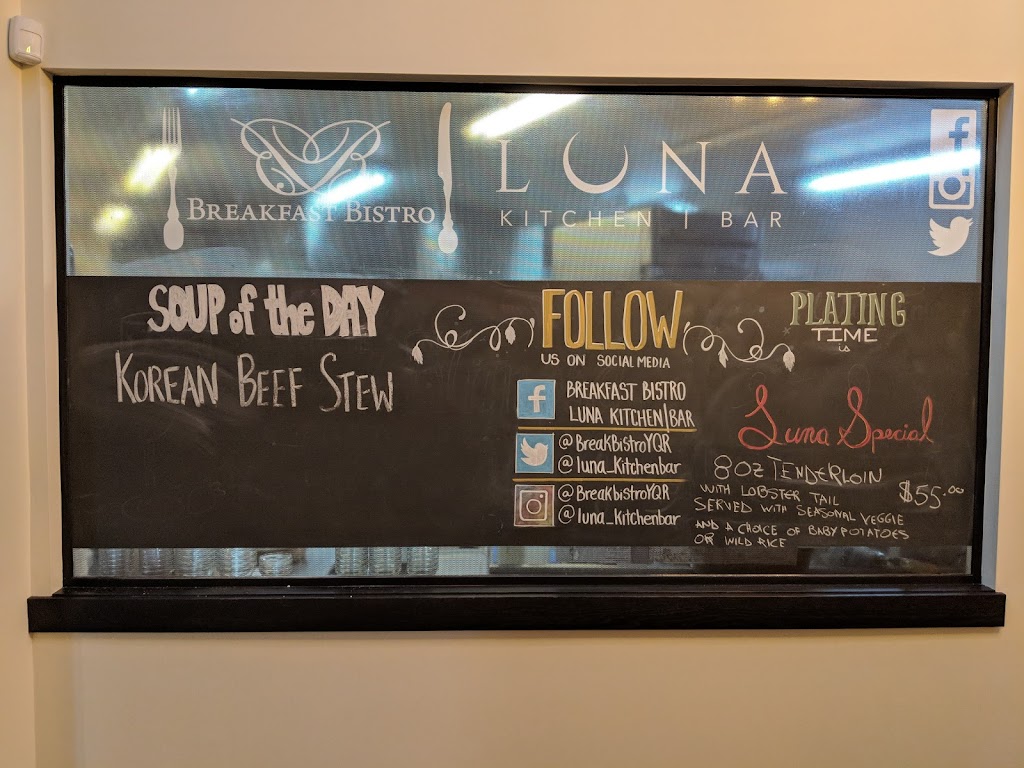 BREAKFAST BISTRO
LUNA
KITCHEN | BAR
SOUP of the DAY
KOREAN BEEF STEW
FOLLOW
US ON SOCIAL MEDIA
BREAKFAST BISTRO
LUNA KITCHEN|BAR
@BreakBistroYQR
@luna_Kitchenbar
@BreakbistroYQR
@luna_Kitchenbar
PLATING
TIME
is
Luna Special
8oz TENDERLOIN
WITH LOBSTER TAIL
$55.00
SERVED WITH SEASONAL VEGGIE
AND A CHOICE OF BABY POTATOES
OR WILD RICE